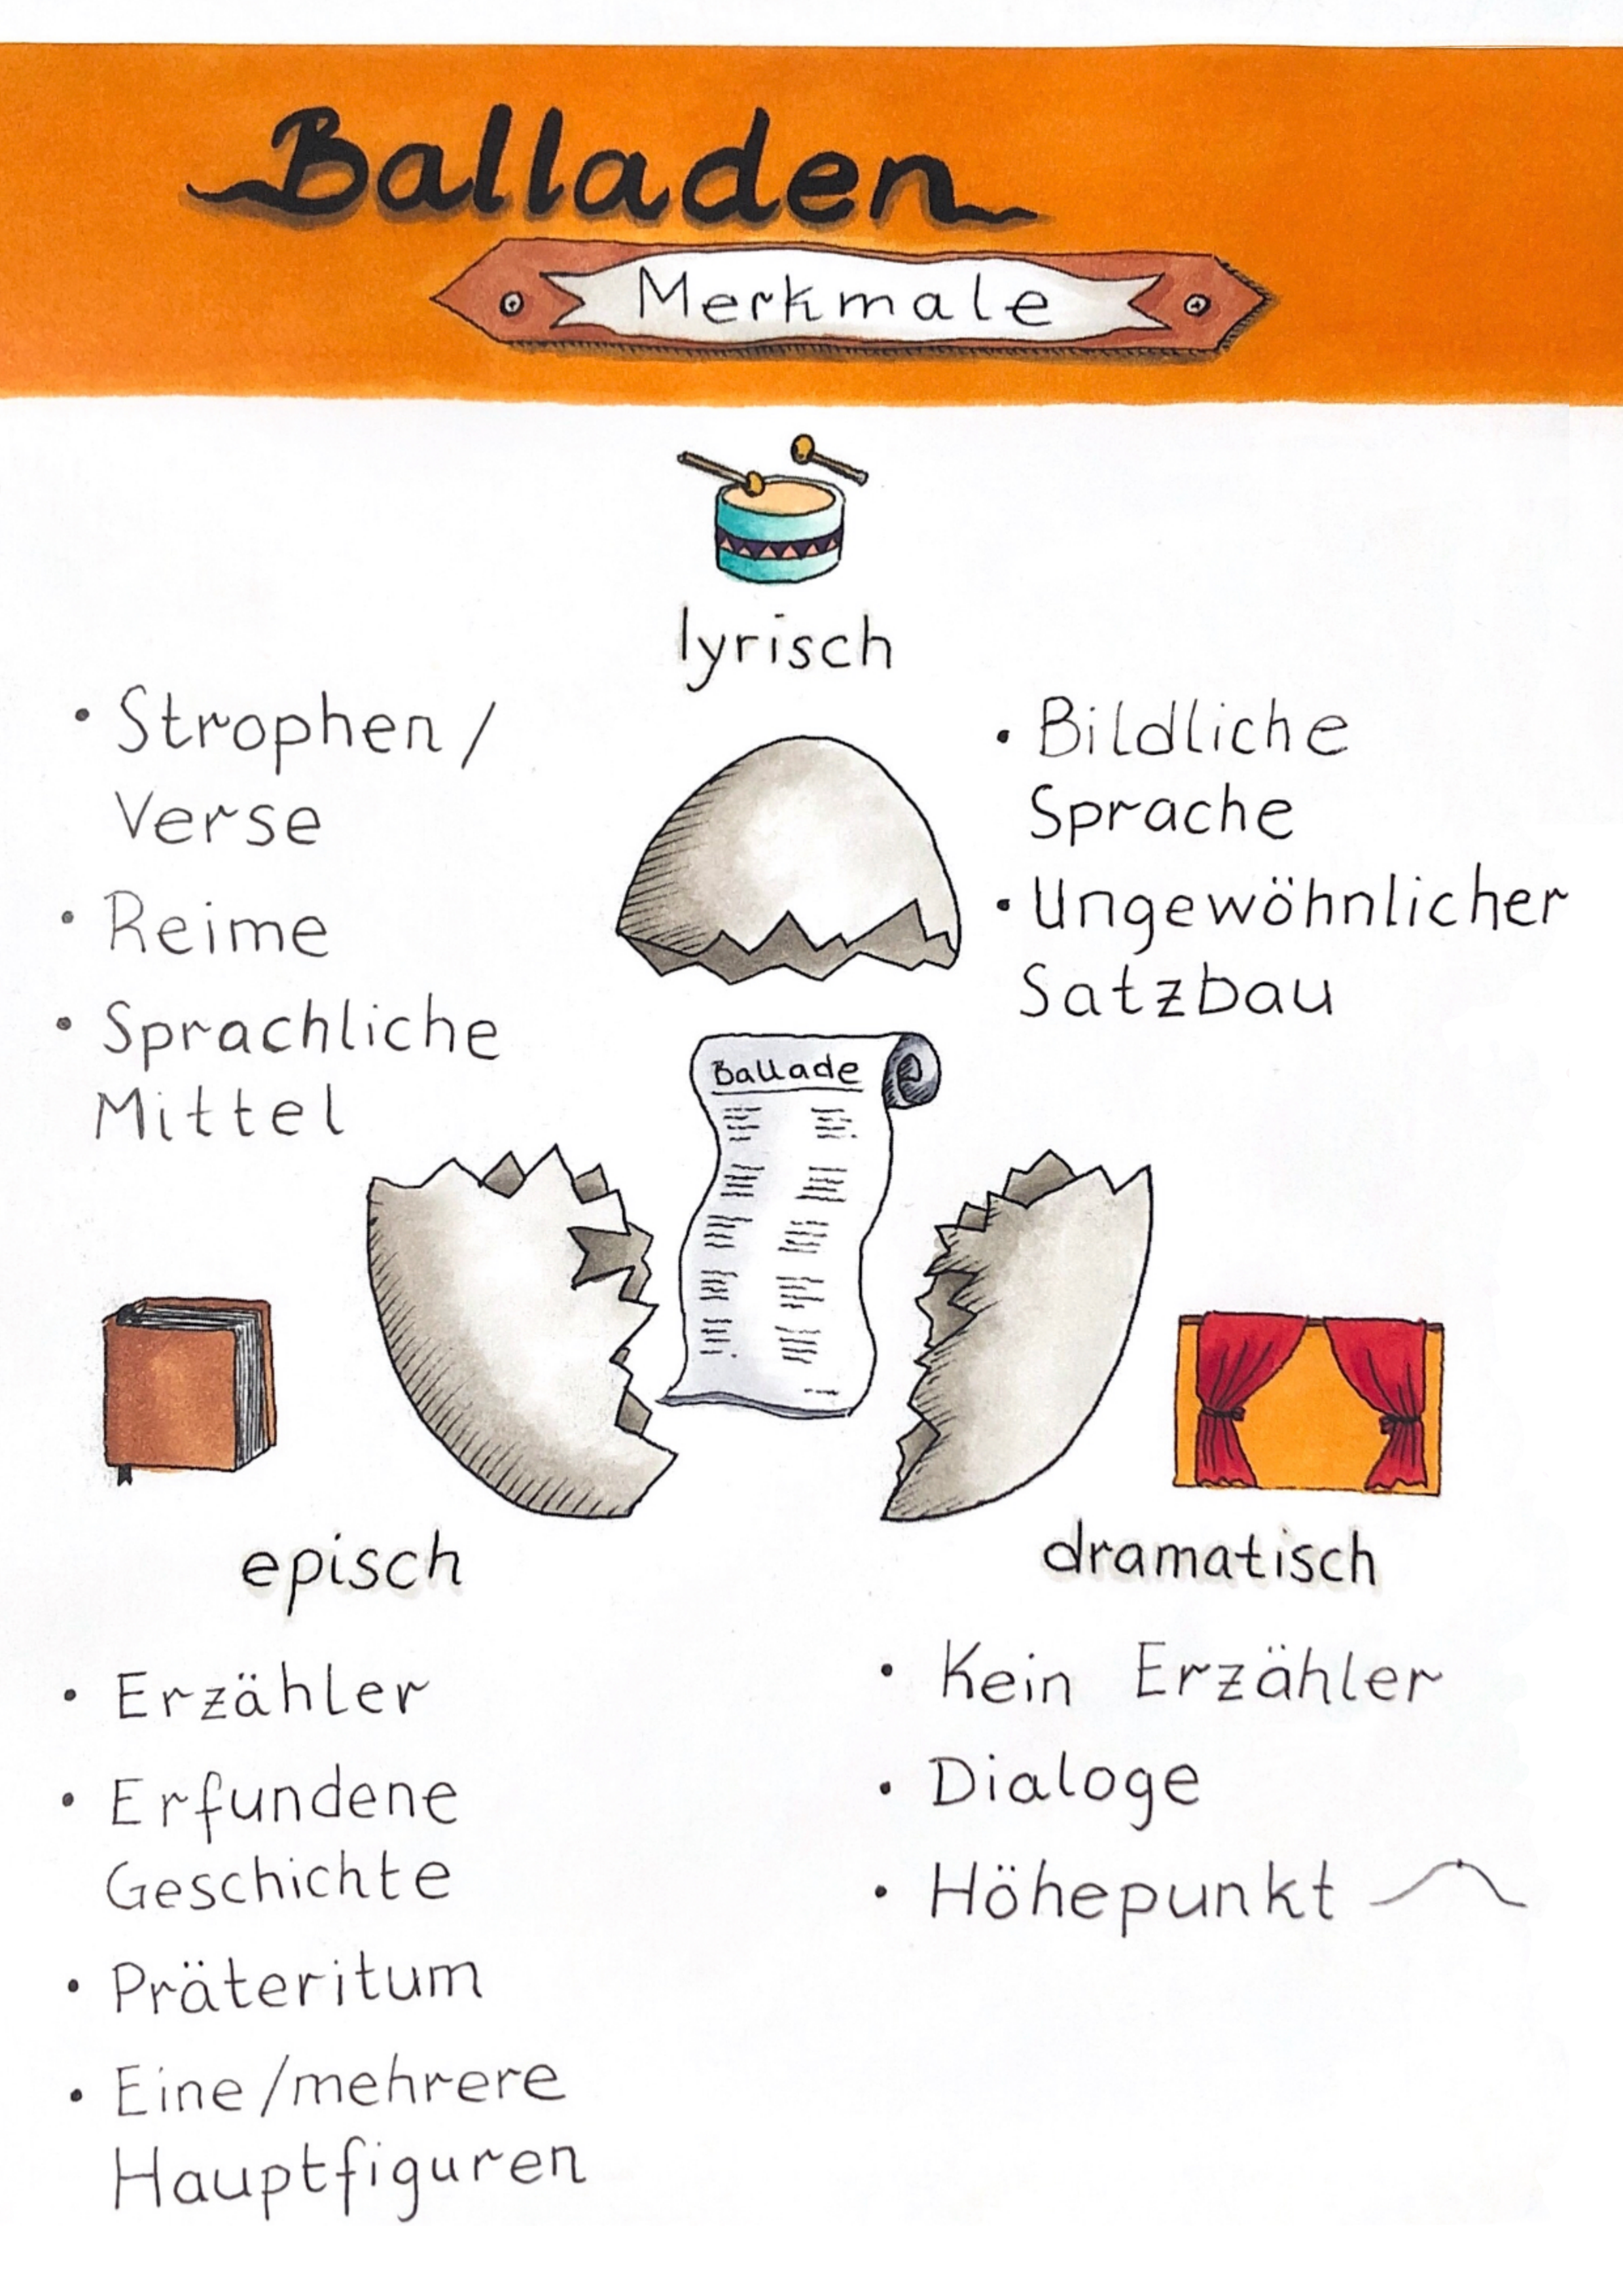 Balladen
Merkmale
lyrisch
• Strophen /
Verse
• Reime
• Sprachliche
Mittel
• Bildliche
Sprache
• Ungewöhnlicher
Satzbau
Ballade
episch
• Erzähler
• Erfundene
Geschichte
• Präteritum
• Eine/mehrere
Hauptfiguren
dramatisch
• Kein Erzähler
• Dialoge
• Höhepunkt